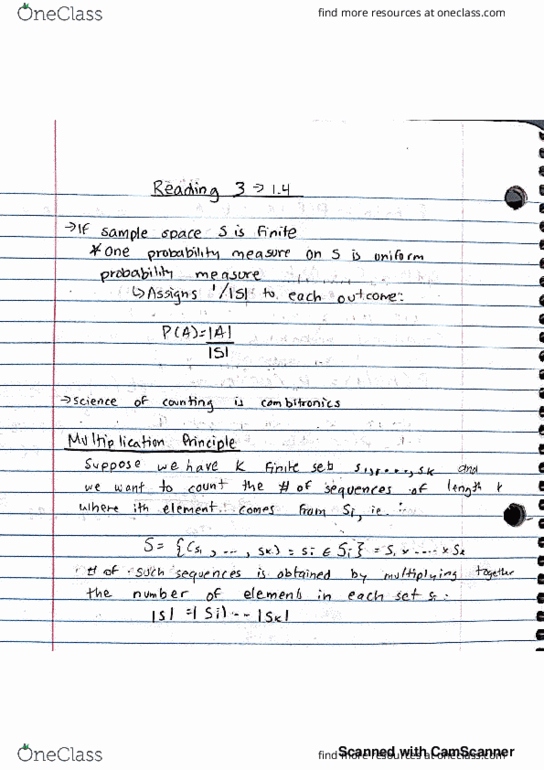 OneClass
find more resources at oneclass.com
Reading 3 → 1.4
→ If sample space S is finite
* One probability measure on S is uniform
probability measure
↳ Assigns 1/|S| to each outcome:
P(A) = |A|
|S|
→ science of counting is combitronics
Multiplication Principle
Suppose we have k finite sets S1, ..., Sk and
we want to count the # of sequences of length k
where ith element comes from Si, ie:
S = {(s1, ..., sk) : si ∈ Si} = S1 x ... x Sk
# of such sequences is obtained by multiplying together
the number of elements in each set Si:
|S| = |Si| -- |Sk|
OneClass
find more resources at oneclass.com
Scanned with CamScanner